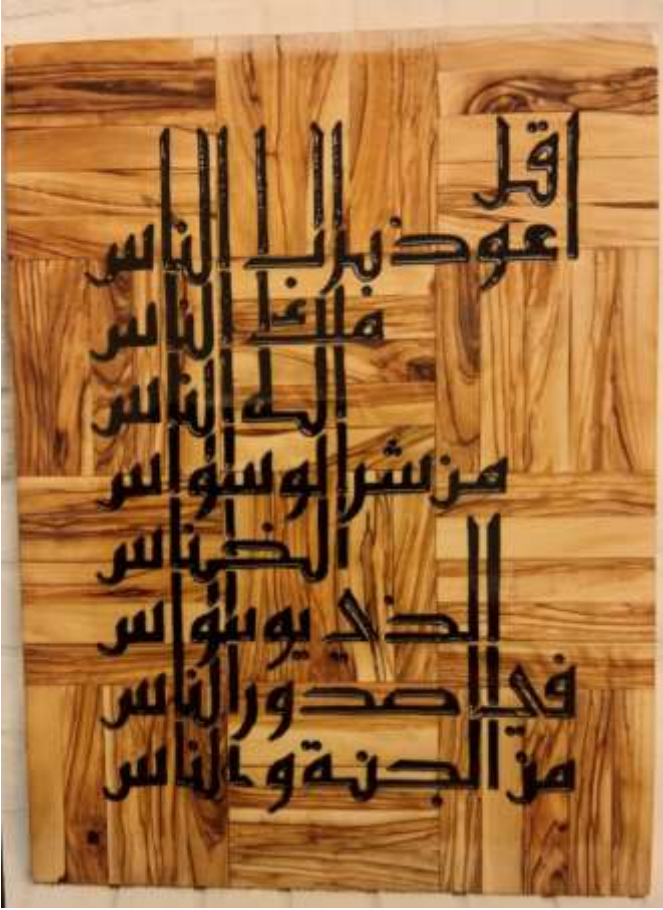 قل
اعوذ برب الناس
ملك الناس
اله الناس
من شر الوسواس
الخناس
الذي يوسوس
في صدور الناس
من الجنة و الناس